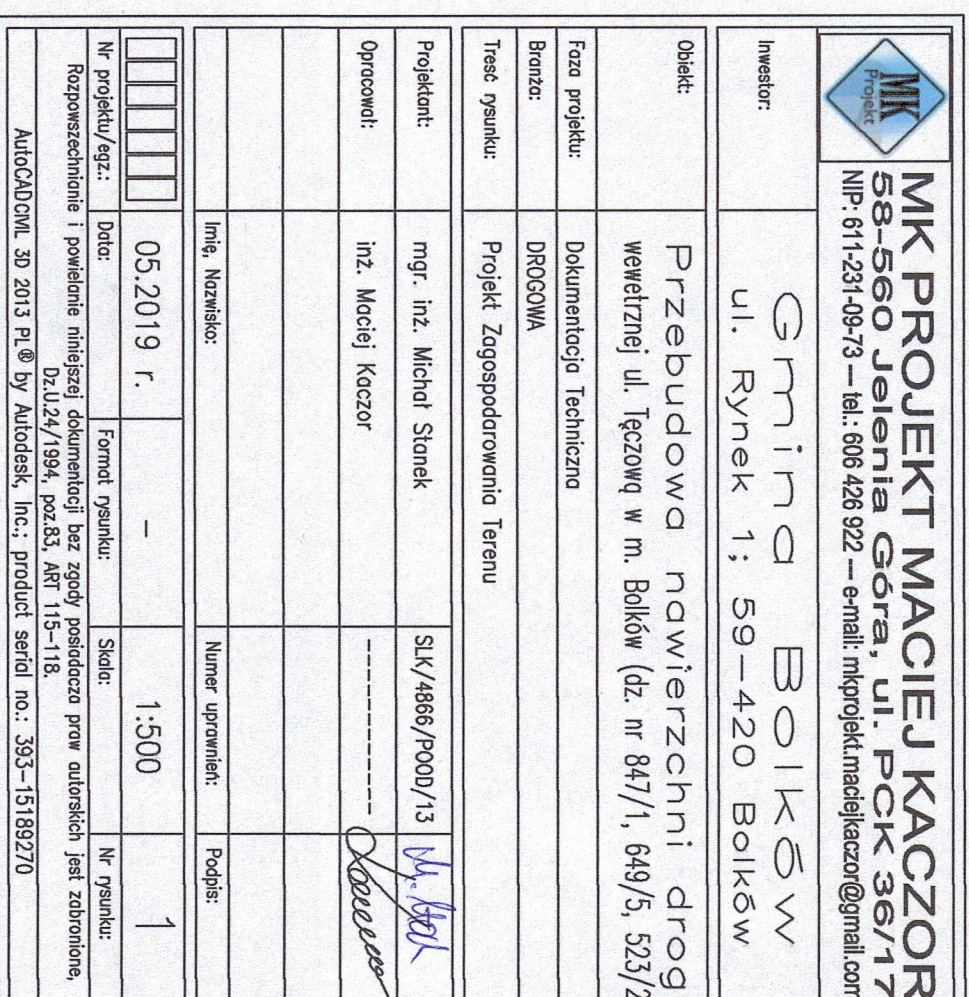 MK
Projekt
MK PROJEKT MACIEJ KACZOR
58-560 Jelenia Góra, ul. PCK 36/17
NIP: 611-231-09-73 --- tel.: 606 426 922 --- e-mail: mkprojekt.maciejkaczor@gmail.com
Inwestor: Gmina Bolków
ul. Rynek 1; 59-420 Bolków
Obiekt: Przebudowa nawierzchni drog
wewetrznej ul. Tęczową w m. Bolków (dz. nr 847/1, 649/5, 523/2
Faza projektu: Dokumentacja Techniczna
Branża: DROGOWA
Tresć rysunku: Projekt Zagospodarowania Terenu
Projektant: mgr. inż. Michał Stanek SLK/4866/POOD/13
Opracował: inż. Maciej Kaczor ----------
Imię, Nazwisko: Numer uprawnień: Podpis:
05.2019 r. - 1:500 1
Nr projektu/egz.: Data: Format rysunku: Skala: Nr rysunku:
Rozpowszechnianie i powielanie niniejszej dokumentacji bez zgody posiadacza praw autorskich jest zabronione,
Dz.U.24/1994, poz.83, ART 115-118.
AutoCADCIVIL 3D 2013 PL® by Autodesk, Inc.; product serial no.: 393-15189270